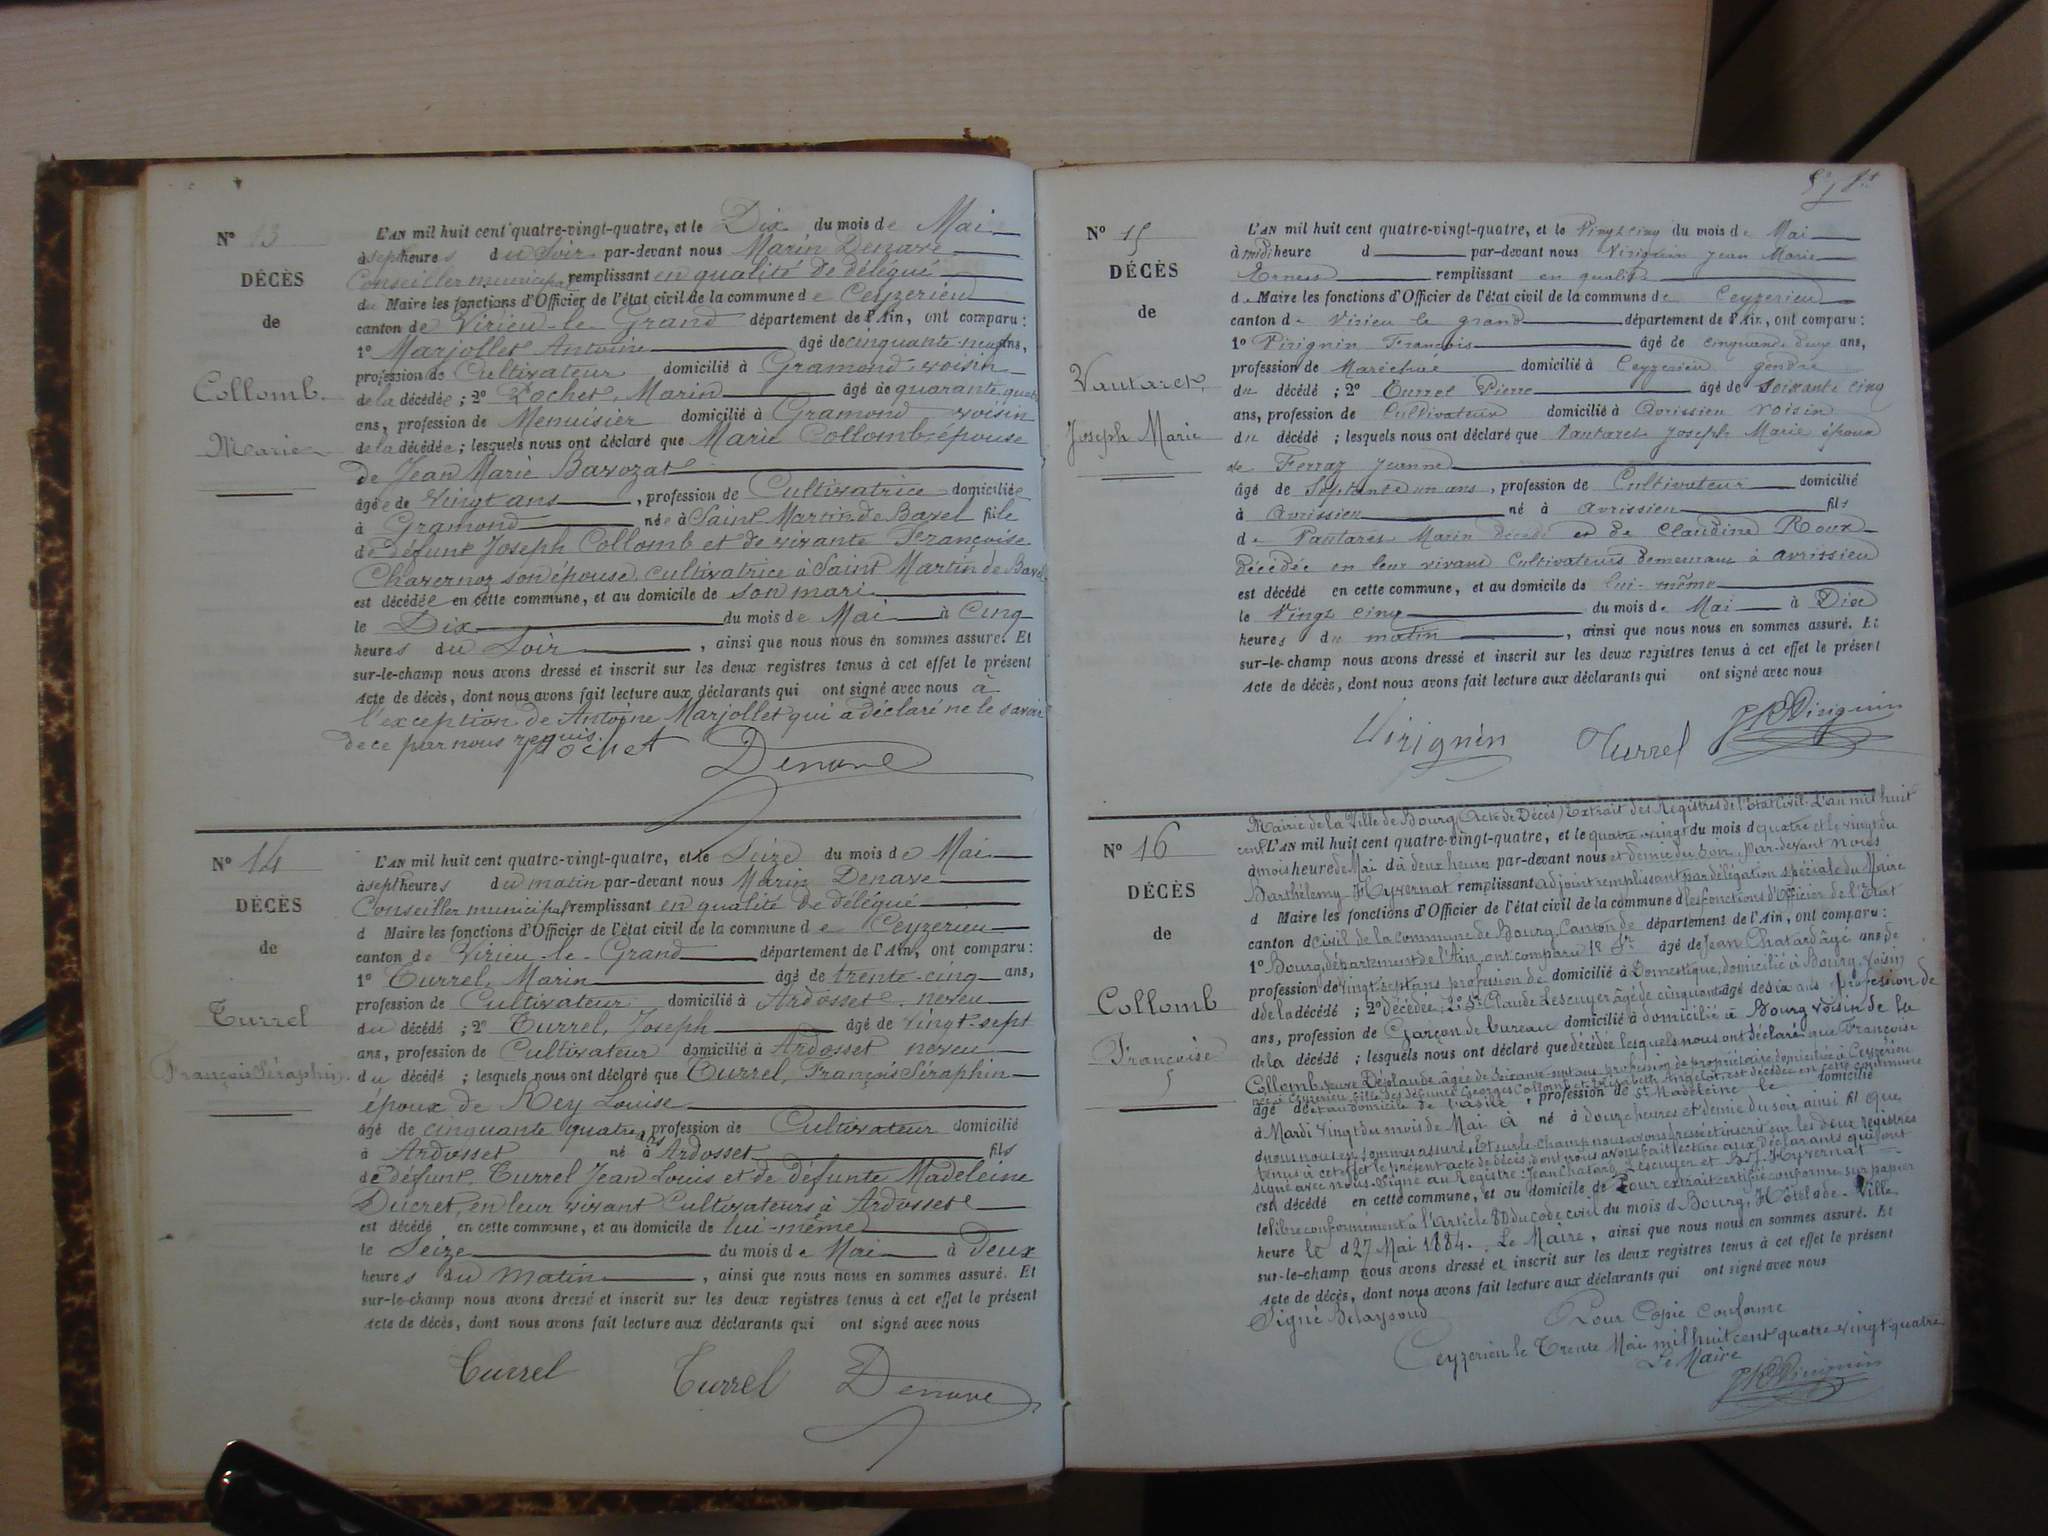 N° 13
DÉCÈS
de
Collomb.
Marie
L'AN mil huit cent quatre-vingt-quatre, et le Dix du mois de Mai
à sept heures du Soir par-devant nous Marin Denave
Conseiller municipal remplissant en qualité de délégué
du Maire les fonctions d'Officier de l'état civil de la commune de Ceyzerieu
canton de Virieu-le-Grand département de l'Ain, ont comparu :
1° Marjollet Antoine âgé de cinquante-neuf ans,
profession de Cultivateur domicilié à Gramond voisin
de la décédée ; 2° Pochet, Marin âgé de quarante quatre
ans, profession de Menuisier domicilié à Gramond voisin
de la décédée ; lesquels nous ont déclaré que Marie Collomb, épouse
de Jean Marie Bavozat
âgée de vingt ans, profession de Cultivatrice domiciliée
à Gramond née à Saint Martin de Bavel fille
de défunt Joseph Collomb et de vivante Françoise
Chavernoz son épouse, cultivatrice à Saint Martin de Bavel
est décédée en cette commune, et au domicile de son mari
le Dix du mois de Mai à Cinq
heures du Soir, ainsi que nous nous en sommes assuré. Et
sur-le-champ nous avons dressé et inscrit sur les deux registres tenus à cet effet le présent
Acte de décès, dont nous avons fait lecture aux déclarants qui ont signé avec nous à
l'exception de Antoine Marjollet qui a déclaré ne le savoir
de ce par nous requis.
Pochet Denave
N° 14
DÉCÈS
de
Turrel
François Séraphin.
L'AN mil huit cent quatre-vingt-quatre, et le Seize du mois de Mai
à sept heures du matin par-devant nous Marin Denave
Conseiller municipal remplissant en qualité de délégué
d Maire les fonctions d'Officier de l'état civil de la commune de Ceyzerieu
canton de Virieu-le-Grand département de l'Ain, ont comparu :
1° Turrel, Marin âgé de trente-cinq ans,
profession de Cultivateur domicilié à Ardosset neveu
du décédé ; 2° Turrel, Joseph âgé de vingt-sept
ans, profession de Cultivateur domicilié à Ardosset neveu
du décédé ; lesquels nous ont déclaré que Turrel, François Séraphin
époux de Rey Louise
âgé de cinquante quatre ans profession de Cultivateur domicilié
à Ardosset né à Ardosset fils
de défunt Turrel Jean Louis et de défunte Madeleine
Ducret, en leur vivant Cultivateurs à Ardosset
est décédé en cette commune, et au domicile de lui-même
le Seize du mois de Mai à Deux
heures du matin, ainsi que nous nous en sommes assuré. Et
sur-le-champ nous avons dressé et inscrit sur les deux registres tenus à cet effet le présent
Acte de décès, dont nous avons fait lecture aux déclarants qui ont signé avec nous
Turrel Turrel Denave
N° 15
DÉCÈS
de
Vautaret
Joseph Marie
L'AN mil huit cent quatre-vingt-quatre, et le Vingt cinq du mois de Mai
à midi heure d par-devant nous Virignin Jean Marie
Ernest remplissant en qualité
de Maire les fonctions d'Officier de l'état civil de la commune de Ceyzerieu
canton de Virieu le grand département de l'Ain, ont comparu :
1° Virignin François âgé de cinquante deux ans,
profession de Maréchal domicilié à Ceyzerieu gendre
du décédé ; 2° Turrel Pierre âgé de soixante cinq
ans, profession de Cultivateur domicilié à Avrissieu voisin
du décédé ; lesquels nous ont déclaré que Vautaret Joseph Marie époux
de Ferraz Jeanne
âgé de Septante un ans, profession de Cultivateur domicilié
à Avrissieu né à Avrissieu fils
de Vautaret Marin décédé et de Claudine Roux
décédée en leur vivant Cultivateurs demeurant à Avrissieu
est décédé en cette commune, et au domicile de lui-même
le Vingt cinq du mois de Mai à Dix
heures du matin, ainsi que nous nous en sommes assuré. Et
sur-le-champ nous avons dressé et inscrit sur les deux registres tenus à cet effet le présent
Acte de décès, dont nous avons fait lecture aux déclarants qui ont signé avec nous
Virignin Turrel Virignin
N° 16
DÉCÈS
de
Collomb
Françoise
Mairie de la Ville de Bourg (Acte de Décès) Extrait des Registres de l'Etat Civil. L'an mil huit
cent L'AN mil huit cent quatre-vingt-quatre, et le quatre-vingt du mois d quatre et le vingt du
à mois heure de Mai d à deux heures par-devant nous et demie du soir, par-devant nous
Barthélemy Hyvernat remplissant adjoint remplissant par délégation spéciale du Maire
d Maire les fonctions d'Officier de l'état civil de la commune d les fonctions d'Officier de l'Etat
canton d civil de la commune de Bourg, Canton de département de l'Ain, ont comparu :
1° Bourg, département de l'Ain, ont comparu 1° Sr âgé de Jean Chatard âgé ans de
profession de vingt-sept ans, profession de domicilié à Domestique, domicilié à Bourg, voisin
d de la décédé ; 2° décédée, 2° Sr Claude Lescuyer âgé de cinquante âgé de six ans profession de
ans, profession de Garçon de bureau domicilié à domicilié à Bourg voisin de la
de la décédé ; lesquels nous ont déclaré que décédée lesquels nous ont déclaré que Françoise
Collomb veuve âgée de soixante sept ans profession de propriétaire domiciliée à Ceyzerieu
née à Ceyzerieu, fille des défunts Georges Collomb et Elisabeth Angelot est décédée en cette commune
âgé de et au domicile de l'asile, profession de Ste Madeleine le domicilié
à Mardi vingt du mois de Mai à né à douze heures et demie du soir ainsi fil que
d nous nous en sommes assuré, Et sur le champ nous avons dressé et inscrit sur les deux registres
tenus à cet effet le présent acte de décès, dont nous avons fait lecture aux déclarants qui ont
signé avec nous. Signé au Registre : Jean Chatard, Lescuyer et Hyvernat
est décédé en cette commune, et au domicile de Pour extrait certifié conforme sur papier
le libre conformément à l'Article 80 du code civil du mois d Bourg, Hôtel de Ville
heure le d 27 Mai 1884. Le Maire, ainsi que nous nous en sommes assuré. Et
sur-le-champ nous avons dressé et inscrit sur les deux registres tenus à cet effet le présent
Acte de décès, dont nous avons fait lecture aux déclarants qui ont signé avec nous
Signé
Pour Copie Conforme
Ceyzerieu le Trente Mai mil huit cent quatre-vingt-quatre
Le Maire
Virignin